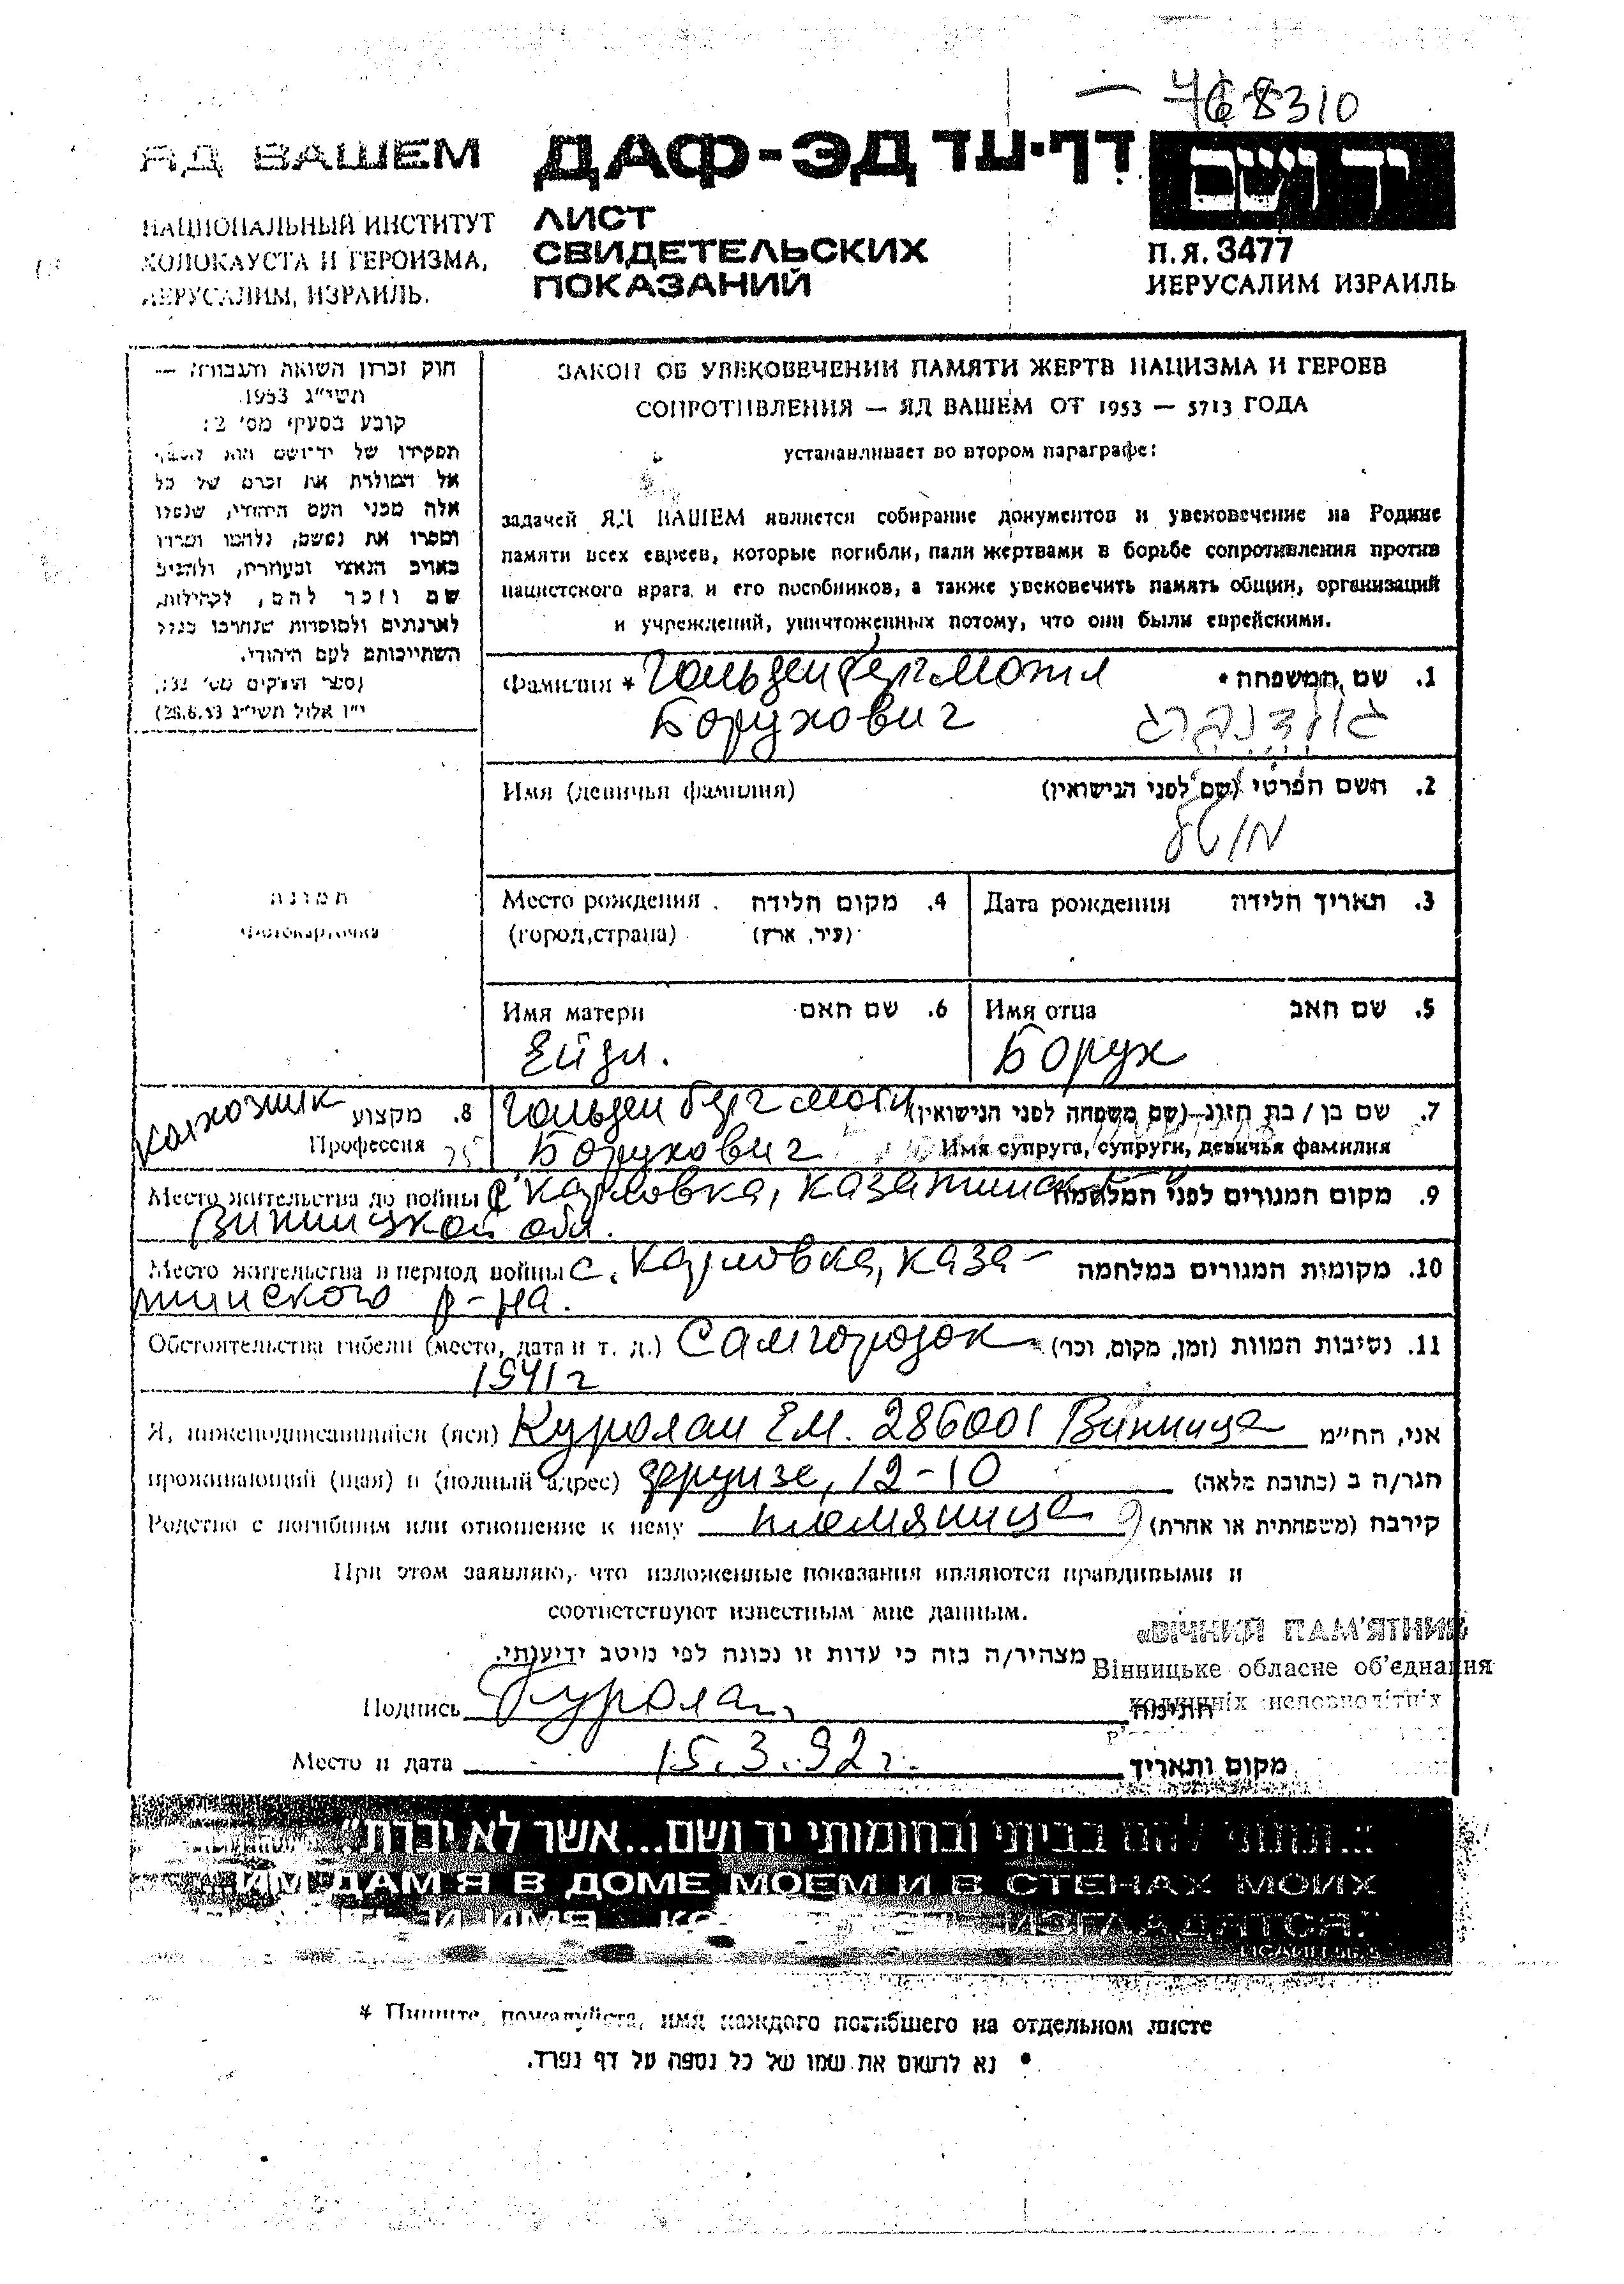 468310
ЯД ВАШЕМ ДАФ-ЭД דף-עד יד ושם
НАЦИОНАЛЬНЫЙ ИНСТИТУТ
ХОЛОКАУСТА И ГЕРОИЗМА,
ИЕРУСАЛИМ, ИЗРАИЛЬ.
ЛИСТ
СВИДЕТЕЛЬСКИХ
ПОКАЗАНИЙ
П.Я. 3477
ИЕРУСАЛИМ ИЗРАИЛЬ
חוק זכרון השואה והגבורה —
תשי"ג 1953
קובע בסעיף מס' 2:
תפקידו של יד-ושם הוא לאסוף
אל המולדת את זכרם של כל
אלה מבני העם היהודי, שנפלו
ומסרו את נפשם, נלחמו ומרדו
באויב הנאצי ובעוזריו, ולהציב
שם וזכר להם, לקהילות,
לארגונים ולמוסדות שנחרבו בגלל
השתייכותם לעם היהודי.
(ספר החוקים מס' 132,
י"ז אלול תשי"ג 28.8.53)
ЗАКОН ОБ УВЕКОВЕЧЕНИИ ПАМЯТИ ЖЕРТВ НАЦИЗМА И ГЕРОЕВ
СОПРОТИВЛЕНИЯ — ЯД ВАШЕМ ОТ 1953 — 5713 ГОДА
устанавливает во втором параграфе:
задачей ЯД ВАШЕМ является собирание документов и увековечение на Родине
памяти всех евреев, которые погибли, пали жертвами в борьбе сопротивления против
нацистского врага и его пособников, а также увековечить память общин, организаций
и учреждений, уничтоженных потому, что они были еврейскими.
Фамилия * Гольденберг Мотл 1. שם המשפחה *
Борухович גולדנברג
Имя (девичья фамилия) 2. השם הפרטי (שם לפני הנישואין)
מוטל
Место рождения 4. מקום הלידה
(город, страна) (עיר, ארץ)
Дата рождения 3. תאריך הלידה
תמונה
Фотокарточка
Имя матери 6. שם האם
Ейди.
Имя отца 5. שם האב
Борух
колхозник 8. מקצוע
Профессия
Гольденберг Мотл 7. שם בן / בת הזוג (שם משפחה לפני הנישואין)
Борухович Имя супруга, супруги, девичья фамилия
Место жительства до войны с. Карловка, Казатинск 9. מקום המגורים לפני המלחמה
Винницкой обл.
Место жительства в период войны с. Карловка, Каза- 10. מקומות המגורים במלחמה
тинского р-на.
Обстоятельства гибели (место, дата и т. д.) Самгородок 11. נסיבות המוות (זמן, מקום, וכו')
1941 г
Я, нижеподписавшийся (аяся) Куролап Е.М. 286001 Винница אני, הח"מ
проживающий (щая) в (полный адрес) 12-10 הגר/ה ב (כתובת מלאה)
Родство с погибшим или отношение к нему племянница קירבה (משפחתית או אחרת)
При этом заявляю, что изложенные показания являются правдивыми и
соответствуют известным мне данным.
מצהיר/ה בזה כי עדות זו נכונה לפי מיטב ידיעותי.
«ВІЧНИЙ ПАМ'ЯТНИК
Вінницьке обласне об'єднання
колишніх неповнолітніх
Подпись Куролап חתימה
Место и дата 15.3.92 г. מקום ותאריך
"...ונתתי להם בביתי ובחומותי יד ושם...אשר לא יכרת"
ИМ ДАМ Я В ДОМЕ МОЕМ И В СТЕНАХ МОИХ
* Пишите, пожалуйста, имя каждого погибшего на отдельном листе
* נא לרשום את שמו של כל נספה על דף נפרד.